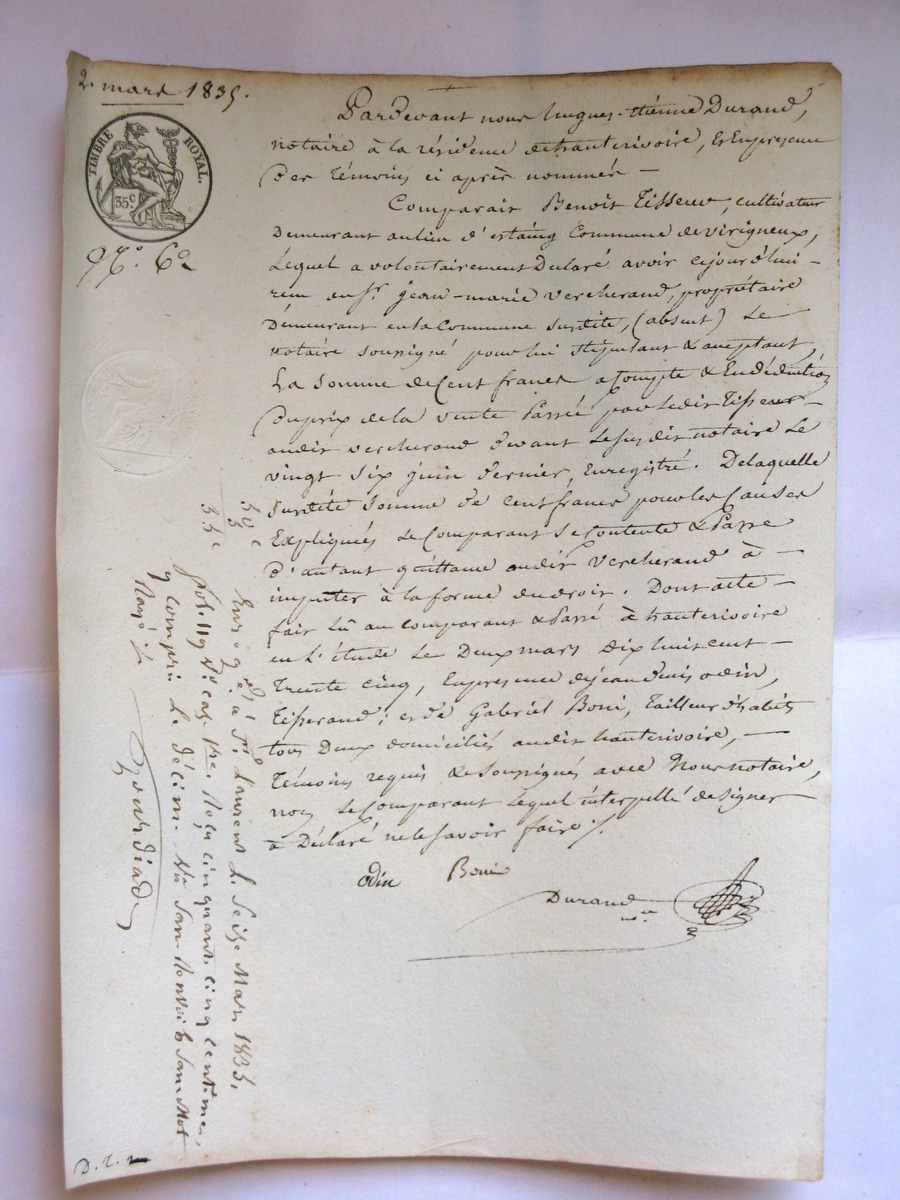 2. mars 1835.
TIMBRE ROYAL.
35c
No. 62
Pardevant nous hugues-étienne Durand,
notaire à la résidence de hauterivoire, Et En presence
des témoins ci après nommés —
Comparait Benoit Tisseur, cultivateur
demeurant au lieu d'estaing Commune de virigneux,
Lequel a volontairement Déclaré avoir cejourd'hui
reçu du Sr. jean-marie vercherand, propriétaire
Demeurant en la Commune susdite, (absent) Le
notaire soussigné pour lui stipulant & acceptant,
La somme de Cent francs a Compte & En déduction
du prix de la vente Passée par Ledit Tisseur
audit vercherand devant Le susdit notaire Le
vingt six juin dernier, Enregistré. De laquelle
susdite somme de cent francs pour les Causes
Expliquées Le Comparant se Contente & Passe
d'autant quittance audit Vercherand à —
imputer à la forme du droit. Dont acte —
fait lû au comparant & Passé à hauterivoire
en L'étude Le Deux mars dix huit cent —
Trente cinq, En presence de jean denis odin,
Tisserand; et de Gabriel Boni, Tailleur d'habits
tous Deux domiciliés audit hauterivoire, —
Témoins requis & soussignés avec Nous notaire,
non Le Comparant Lequel interpellé de signer
a Déclaré ne le savoir faire ./.
odin Boni
Durand
nre
50c
5
55c
Enregé. à St. Laurent Le Seize Mars 1835,
fol. 119 Vo. cas. 1re. Reçu cinquante cinq centimes
y compris Le décime
Gourdiad
D. 2.